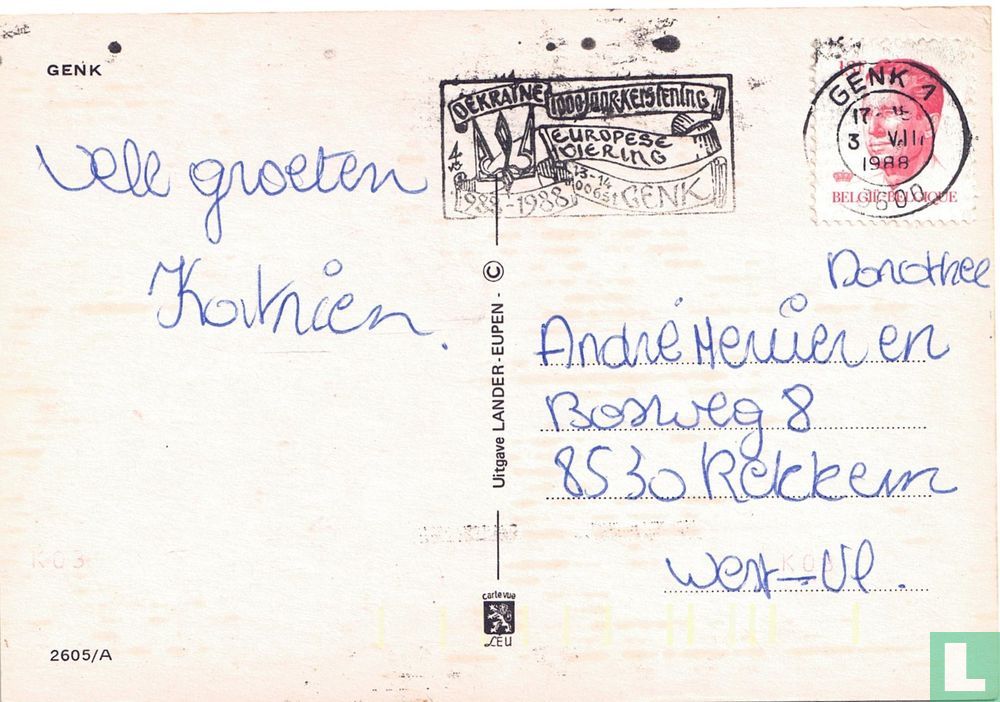 GENK
Vele groeten
Katrien.
OEKRAINE 1000 JAAR KERSTENING
EUROPESE
VIERING
13-14
OOGST GENK
988-1988
GENK 1
17-
3 VIII
1988
3600
BELGIË-BELGIQUE
Uitgave LANDER-EUPEN - ©
Dorothee
André en
Bosweg 8
8530 Rekkem
West-Vl.
K03
K03
carte vue
LEU
2605/A
L